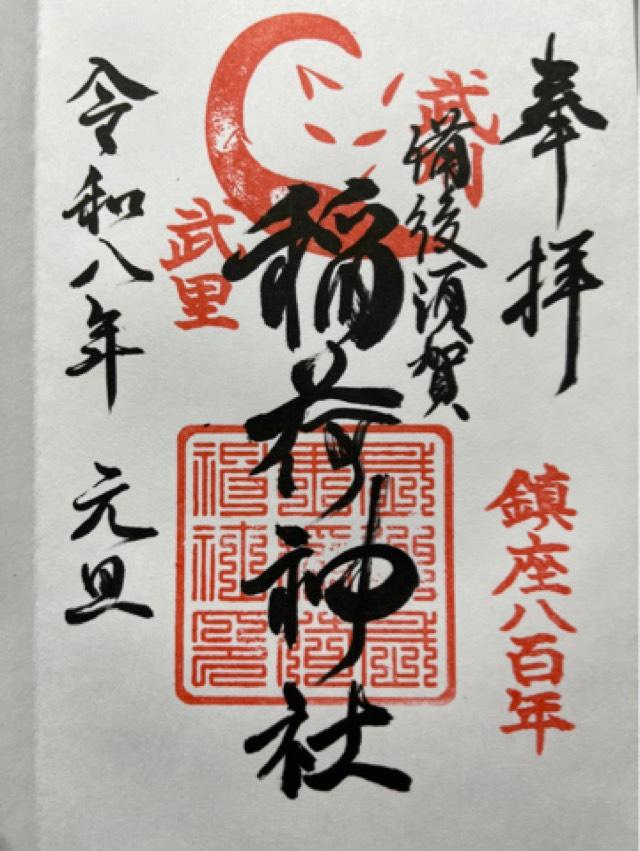 奉拝
鎮座八百年
武州
備後須賀
稲荷神社
武里
令和八年 元旦